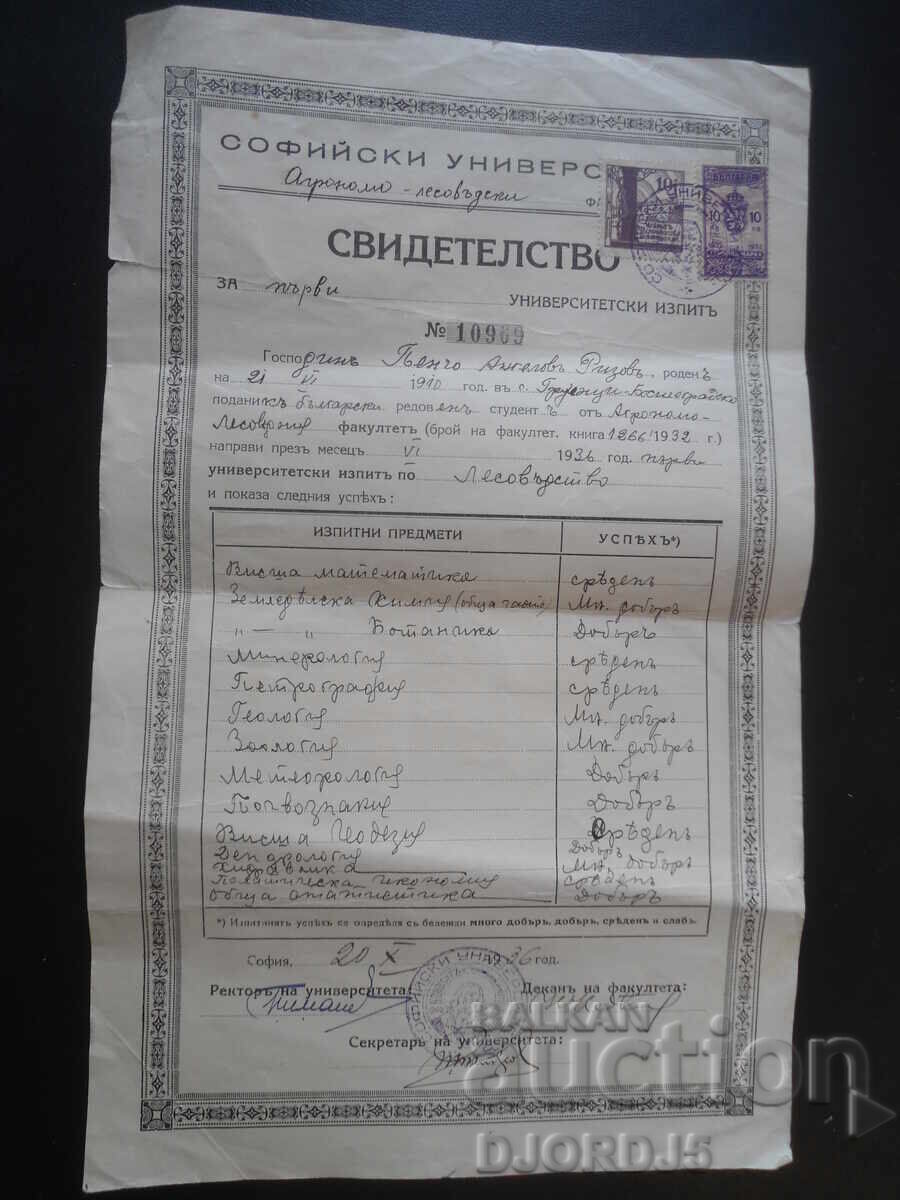 СОФИЙСКИ УНИВЕРС
Агрономо-лесовъдски Ф
СВИДЕТЕЛСТВО
ЗА първи УНИВЕРСИТЕТСКИ ИЗПИТЪ
№ 10969
Господинъ Пенчо Ангеловъ Ризовъ, роденъ
на 21 VI 1910 год. въ с.
поданикъ български редовенъ студентъ отъ Агрономо-
Лесовъдния факултетъ (брой на факултет. книга 1266/1932 г.)
направи презъ месецъ VI 1936 год. първи
университетски изпитъ по Лесовъдство
и показа следния успѣхъ:
ИЗПИТНИ ПРЕДМЕТИ УСПѢХЪ*)
Висша математика срѣденъ
Земледѣлска Химия (обща часть) Мн. добъръ
„ — „ Ботаника Добъръ
Минерология срѣденъ
Петрография срѣденъ
Геология Мн. добъръ
Зоология Мн. добъръ
Метеорология Добъръ
Почвознание Добъръ
Висша Геодезия Срѣденъ
Дендрология Добъръ
Хидравлика Мн. добъръ
Политическа икономия срѣденъ
Обща статистика Добъръ
*) Изпитниятъ успѣхъ се опредѣля съ бележки много добъръ, добъръ, срѣденъ и слабъ.
София, 20 X 1936 год.
Ректоръ на университета: Деканъ на факултета:
Секретарь на университета:
БЪЛГАРИЯ
10 10
10
BALKAN
auction
DJORDJ5